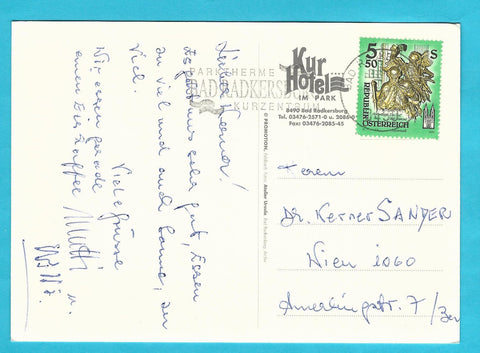 Lieber Werner!
Es geht uns sehr gut, Essen
zu viel und auch Sauna, zu
viel.
Wir essen gerade
einen Eiskaffee
Viele Grüsse
Mutti u.
PARKTHERME
BAD RADKERSBURG
KURZENTRUM
Kur
Hotel
IM PARK
8490 Bad Radkersburg
Tel. 03476-2571-0 u. 2085-0
Fax: 03476-2085-45
© PROMOTION,
Atelier Ursula
5 S
50
REPUBLIK
ÖSTERREICH
Herrn
Dr. Werner SANDER
Wien 1060
Amerlingstr. 7/